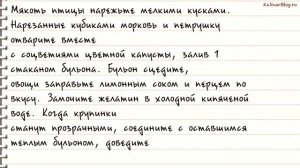 KulinarBlog.ru
Мякоть птицы нарежьте мелкими кусками.
Нарезанные кубиками морковь и петрушку
отварите вместе
с соцветиями цветной капусты, залив 1
стаканом бульона. Бульон сцедите,
овощи заправьте лимонным соком и перцем по
вкусу. Замочите желатин в холодной кипяченой
воде. Когда крупинки
станут прозрачными, соедините с оставшимся
теплым бульоном, доведите